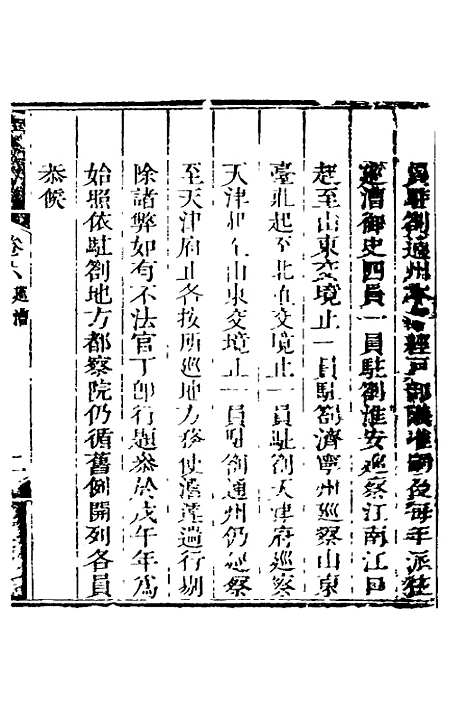 員駐劄通州本經戶部議准嗣後每年派往
巡漕御史四員一員駐劄淮安巡察江南江口
起至山東交境止一員駐劄濟寧州巡察山東
臺莊起至北直交境止一員駐劄天津府巡察
天津起至山東交境止一員駐劄通州仍巡察
至天津府止各按所巡地方務使漕運遄行剔
除諸弊如有不法官丁卽行題參於戊午年爲
始照依駐劄地方都察院仍循舊例開列各員
恭候
卷八 巡漕
二